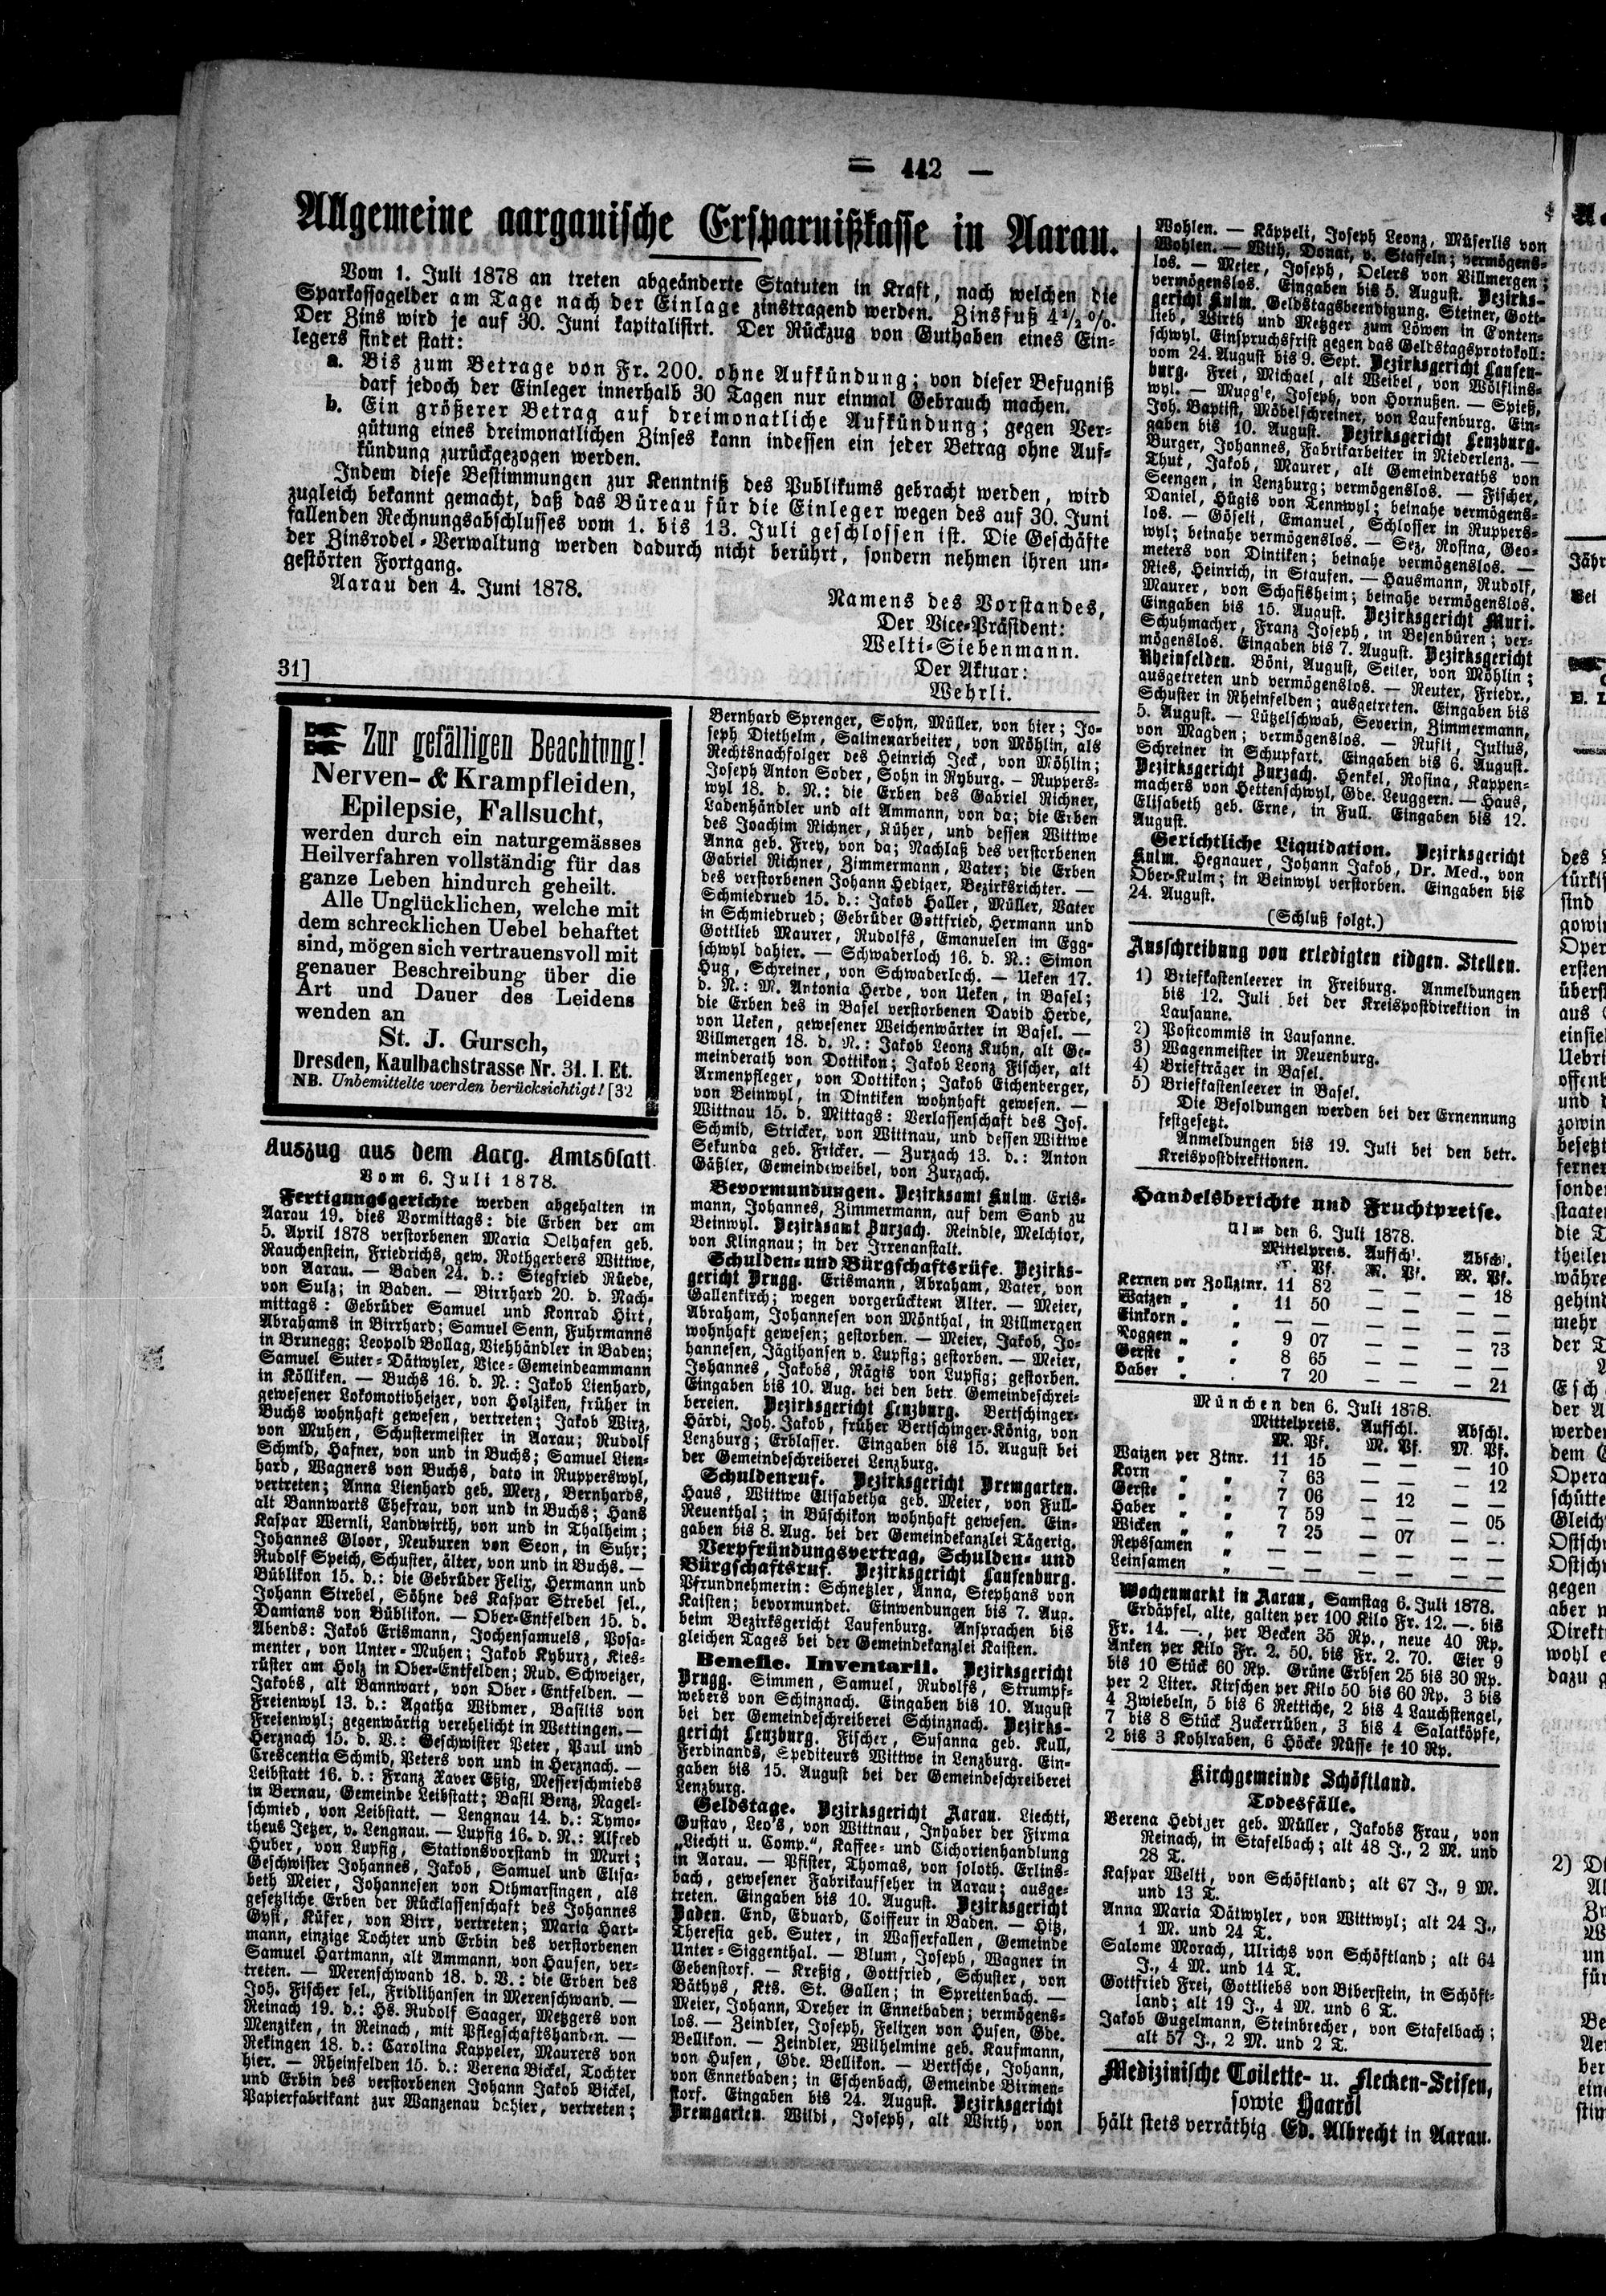 = 442 —
Allgemeine aargauische Ersparnißkasse in Aarau.
Vom 1. Juli 1878 an treten abgeänderte Statuten in Kraft, nach welchen die
Sparkassagelder am Tage nach der Einlage zinstragend werden. Zinsfuß 4½ %.
Der Zins wird je auf 30. Juni kapitalisirt. Der Rückzug von Guthaben eines Ein-
legers findet statt:
a. Bis zum Betrage von Fr. 200. ohne Aufkündung; von dieser Befugniß
darf jedoch der Einleger innerhalb 30 Tagen nur einmal Gebrauch machen.
b. Ein größerer Betrag auf dreimonatliche Aufkündung; gegen Ver-
gütung eines dreimonatlichen Zinses kann indessen ein jeder Betrag ohne Auf-
kündung zurückgezogen werden.
Indem diese Bestimmungen zur Kenntniß des Publikums gebracht werden, wird
zugleich bekannt gemacht, daß das Büreau für die Einleger wegen des auf 30. Juni
fallenden Rechnungsabschlusses vom 1. bis 13. Juli geschlossen ist. Die Geschäfte
der Zinsrodel-Verwaltung werden dadurch nicht berührt, sondern nehmen ihren un-
gestörten Fortgang.
Aarau den 4. Juni 1878.
Namens des Vorstandes,
Der Vice-Präsident:
Welti-Siebenmann.
Der Aktuar:
Wehrli.
31]
Zur gefälligen Beachtung!
Nerven- & Krampfleiden,
Epilepsie, Fallsucht,
werden durch ein naturgemässes
Heilverfahren vollständig für das
ganze Leben hindurch geheilt.
Alle Unglücklichen, welche mit
dem schrecklichen Uebel behaftet
sind, mögen sich vertrauensvoll mit
genauer Beschreibung über die
Art und Dauer des Leidens
wenden an
St. J. Gursch,
Dresden, Kaulbachstrasse Nr. 31. I. Et.
NB. Unbemittelte werden berücksichtigt! [32
Auszug aus dem Aarg. Amtsblatt
Vom 6. Juli 1878.
Fertigungsgerichte werden abgehalten in
Aarau 19. dies Vormittags: die Erben der am
5. April 1878 verstorbenen Maria Oelhafen geb.
Rauchenstein, Friedrichs, gew. Rothgerbers Wittwe,
von Aarau. — Baden 24. d.: Siegfried Rüede,
von Sulz; in Baden. — Birrhard 20. d. Nach-
mittags: Gebrüder Samuel und Konrad Hirt,
Abrahams in Birrhard; Samuel Senn, Fuhrmanns
in Brunegg; Leopold Bollag, Viehhändler in Baden;
Samuel Suter-Dätwyler, Vice-Gemeindeammann
in Kölliken. — Buchs 16. d. N.: Jakob Lienhard,
gewesener Lokomotivheizer, von Holziken, früher in
Buchs wohnhaft gewesen, vertreten; Jakob Wirz,
von Muhen, Schustermeister in Aarau; Rudolf
Schmid, Hafner, von und in Buchs; Samuel Lien-
hard, Wagners von Buchs, dato in Rupperswyl,
vertreten; Anna Lienhard geb. Merz, Bernhards,
alt Bannwarts Ehefrau, von und in Buchs; Hans
Kaspar Wernli, Landwirth, von und in Thalheim;
Johannes Gloor, Neuburen von Seon, in Suhr;
Rudolf Speich, Schuster, älter, von und in Buchs. —
Büblikon 15. d.: die Gebrüder Felix, Hermann und
Johann Strebel, Söhne des Kaspar Strebel sel.,
Damians von Büblikon. — Ober-Entfelden 15. d.
Abends: Jakob Erismann, Jochensamuels, Posa-
menter, von Unter-Muhen; Jakob Kyburz, Kies-
rüster am Holz in Ober-Entfelden; Rud. Schweizer,
Jakobs, alt Bannwart, von Ober-Entfelden. —
Freienwyl 13. d.: Agatha Widmer, Basilis von
Freienwyl; gegenwärtig verehelicht in Wettingen. —
Herznach 15. d. V.: Geschwister Peter, Paul und
Crescentia Schmid, Peters von und in Herznach. —
Leibstatt 16. d.: Franz Xaver Eßig, Messerschmieds
in Bernau, Gemeinde Leibstatt; Basil Benz, Nagel-
schmied, von Leibstatt. — Lengnau 14. d.: Tymo-
theus Jetzer, v. Lengnau. — Lupfig 16. d. N.: Alfred
Huber, von Lupfig, Stationsvorstand in Muri;
Geschwister Johannes, Jakob, Samuel und Elisa-
beth Meier, Johannesen von Othmarsingen, als
gesetzliche Erben der Rücklassenschaft des Johannes
Gysi, Küfer, von Birr, vertreten; Maria Hart-
mann, einzige Tochter und Erbin des verstorbenen
Samuel Hartmann, alt Ammann, von Hausen, ver-
treten. — Merenschwand 18. d. V.: die Erben des
Joh. Fischer sel., Fridlihansen in Merenschwand. —
Reinach 19. d.: Hs. Rudolf Saager, Metzgers von
Menziken, in Reinach, mit Pflegschaftshanden. —
Rekingen 18. d.: Carolina Kappeler, Maurers von
hier. — Rheinfelden 15. d.: Verena Bickel, Tochter
und Erbin des verstorbenen Johann Jakob Bickel,
Papierfabrikant zur Wanzenau dahier, vertreten;
Bernhard Sprenger, Sohn, Müller, von hier; Jo-
seph Diethelm, Salinenarbeiter, von Möhlin, als
Rechtsnachfolger des Heinrich Jeck, von Möhlin;
Joseph Anton Soder, Sohn in Ryburg. — Ruppers-
wyl 18. d. N.: die Erben des Gabriel Richner,
Ladenhändler und alt Ammann, von da; die Erben
des Joachim Richner, Küher, und dessen Wittwe
Anna geb. Frey, von da; Nachlaß des verstorbenen
Gabriel Richner, Zimmermann, Vater; die Erben
des verstorbenen Johann Hediger, Bezirksrichter. —
Schmiedrued 15. d.: Jakob Haller, Müller, Vater
in Schmiedrued; Gebrüder Gottfried, Hermann und
Gottlieb Maurer, Rudolfs, Emanuelen im Egg-
schwyl dahier. — Schwaderloch 16. d. N.: Simon
Hug, Schreiner, von Schwaderloch. — Ueken 17.
d. N.: M. Antonia Herde, von Ueken, in Basel;
die Erben des in Basel verstorbenen David Herde,
von Ueken, gewesener Weichenwärter in Basel. —
Villmergen 18. d. N.: Jakob Leonz Kuhn, alt Ge-
meinderath von Dottikon; Jakob Leonz Fischer, alt
Armenpfleger, von Dottikon; Jakob Eichenberger,
von Beinwyl, in Dintiken wohnhaft gewesen. —
Wittnau 15. d. Mittags: Verlassenschaft des Jos.
Schmid, Stricker, von Wittnau, und dessen Wittwe
Sekunda geb. Fricker. — Zurzach 13. d.: Anton
Gäßler, Gemeindeweibel, von Zurzach.
Bevormundungen. Bezirksamt Kulm. Eris-
mann, Johannes, Zimmermann, auf dem Sand zu
Beinwyl. Bezirksamt Zurzach. Reindle, Melchior,
von Klingnau; in der Irrenanstalt.
Schulden- und Bürgschaftsrüfe. Bezirks-
gericht Brugg. Erismann, Abraham, Vater, von
Gallenkirch; wegen vorgerücktem Alter. — Meier,
Abraham, Johannesen von Mönthal, in Villmergen
wohnhaft gewesen; gestorben. — Meier, Jakob, Jo-
hannesen, Jägihansen v. Lupfig; gestorben. — Meier,
Johannes, Jakobs, Rägis von Lupfig; gestorben.
Eingaben bis 10. Aug. bei den betr. Gemeindeschrei-
bereien. Bezirksgericht Lenzburg. Bertschinger-
Härdi, Joh. Jakob, früher Bertschinger-König, von
Lenzburg; Erblasser. Eingaben bis 15. August bei
der Gemeindeschreiberei Lenzburg.
Schuldenruf. Bezirksgericht Bremgarten.
Haus, Wittwe Elisabetha geb. Meier, von Full-
Reuenthal; in Büschikon wohnhaft gewesen. Ein-
gaben bis 8. Aug. bei der Gemeindekanzlei Tägerig.
Verpfründungsvertrag, Schulden- und
Bürgschaftsruf. Bezirksgericht Laufenburg.
Pfrundnehmerin: Schnetzler, Anna, Stephans von
Kaisten; bevormundet. Einwendungen bis 7. Aug.
beim Bezirksgericht Laufenburg. Ansprachen bis
gleichen Tages bei der Gemeindekanzlei Kaisten.
Benefic. Inventarii. Bezirksgericht
Brugg. Simmen, Samuel, Rudolfs, Strumpf-
webers von Schinznach. Eingaben bis 10. August
bei der Gemeindeschreiberei Schinznach. Bezirks-
gericht Lenzburg. Fischer, Susanna geb. Kull,
Ferdinands, Spediteurs Wittwe in Lenzburg. Ein-
gaben bis 15. August bei der Gemeindeschreiberei
Lenzburg.
Geldstage. Bezirksgericht Aarau. Liechti,
Gustav, Leo's, von Wittnau, Inhaber der Firma
„Liechti u. Comp.“, Kaffee- und Cichorienhandlung
in Aarau. — Pfister, Thomas, von soloth. Erlins-
bach, gewesener Fabrikaufseher in Aarau; ausge-
treten. Eingaben bis 10. August. Bezirksgericht
Baden. End, Eduard, Coiffeur in Baden. — Hitz,
Theresia geb. Suter, in Wasserfallen, Gemeinde
Unter-Siggenthal. — Blum, Joseph, Wagner in
Gebenstorf. — Kreßig, Gottfried, Schuster, von
Bäthys, Kts. St. Gallen; in Spreitenbach. —
Meier, Johann, Dreher in Ennetbaden; vermögens-
los. — Zeindler, Joseph, Felixen von Husen, Gde.
Bellikon. — Zeindler, Wilhelmine geb. Kaufmann,
von Husen, Gde. Bellikon. — Bertsche, Johann,
von Ennetbaden; in Eschenbach, Gemeinde Birmen-
storf. Eingaben bis 24. August. Bezirksgericht
Bremgarten. Wildi, Joseph, alt Wirth, von
Wohlen. — Käppeli, Joseph Leonz, Müserlis von
Wohlen. — With, Donat, v. Staffeln; vermögens-
los. — Meier, Joseph, Oelers von Villmergen;
vermögenslos. Eingaben bis 5. August. Bezirks-
gericht Kulm. Geldstagsbeendigung. Steiner, Gott-
lieb, Wirth und Metzger zum Löwen in Conten-
schwyl. Einspruchsfrist gegen das Geldstagsprotokoll:
vom 24. August bis 9. Sept. Bezirksgericht Laufen-
burg. Frei, Michael, alt Weibel, von Wölflins-
wyl. — Mugg'e, Joseph, von Hornußen. — Spieß,
Joh. Baptist, Möbelschreiner, von Laufenburg. Ein-
gaben bis 10. August. Bezirksgericht Lenzburg.
Burger, Johannes, Fabrikarbeiter in Niederlenz. —
Thut, Jakob, Maurer, alt Gemeinderaths von
Seengen, in Lenzburg; vermögenslos. — Fischer,
Daniel, Hügis von Tennwyl; beinahe vermögens-
los. — Göseli, Emanuel, Schlosser in Ruppers-
wyl; beinahe vermögenslos. — Sez, Rosina, Geo-
meters von Dintiken; beinahe vermögenslos. —
Ries, Heinrich, in Staufen. — Hausmann, Rudolf,
Maurer, von Schafisheim; beinahe vermögenslos.
Eingaben bis 15. August. Bezirksgericht Muri.
Schuhmacher, Franz Joseph, in Besenbüren; ver-
mögenslos. Eingaben bis 7. August. Bezirksgericht
Rheinfelden. Böni, August, Seiler, von Möhlin;
ausgetreten und vermögenslos. — Reuter, Friedr.,
Schuster in Rheinfelden; ausgetreten. Eingaben bis
5. August. — Lützelschwab, Severin, Zimmermann,
von Magden; vermögenslos. — Rufli, Julius,
Schreiner in Schupfart. Eingaben bis 6. August.
Bezirksgericht Zurzach. Henkel, Rosina, Kappen-
machers von Hettenschwyl, Gde. Leuggern. — Haus,
Elisabeth geb. Erne, in Full. Eingaben bis 12.
August.
Gerichtliche Liquidation. Bezirksgericht
Kulm. Hegnauer, Johann Jakob, Dr. Med., von
Ober-Kulm; in Beinwyl verstorben. Eingaben bis
24. August.
(Schluß folgt.)
Ausschreibung von erledigten eidgen. Stellen.
1) Briefkastenleerer in Freiburg. Anmeldungen
bis 12. Juli bei der Kreispostdirektion in
Lausanne.
2) Postcommis in Lausanne.
3) Wagenmeister in Neuenburg.
4) Briefträger in Basel.
5) Briefkastenleerer in Basel.
Die Besoldungen werden bei der Ernennung
festgesetzt.
Anmeldungen bis 19. Juli bei den betr.
Kreispostdirektionen.
Handelsberichte und Fruchtpreise.
Ulm den 6. Juli 1878.
Mittelpreis. Aufschl. Abschl.
M. Pf. M. Pf. M. Pf.
Kernen per Zollztnr. 11 82 — — — 18
Waizen „ „ 11 50 — — — —
Einkorn „ „ — — — — — —
Roggen „ „ 9 07 — — — 73
Gerste „ „ 8 65 — — — —
Haber „ „ 7 20 — — — 21
München den 6. Juli 1878.
Mittelpreis. Aufschl. Abschl.
M. Pf. M. Pf. M. Pf.
Waizen per Ztnr. 11 15 — — — 10
Korn „ „ 7 63 — — — 12
Gerste „ „ 7 06 — 12 — —
Haber „ „ 7 59 — — — 05
Wicken „ „ 7 25 — 07 — —
Repssamen „ — — — — — —
Leinsamen „ — — — — — —
Wochenmarkt in Aarau, Samstag 6. Juli 1878.
Erdäpfel, alte, galten per 100 Kilo Fr. 12. —. bis
Fr. 14. —., per Becken 35 Rp., neue 40 Rp.
Anken per Kilo Fr. 2. 50. bis Fr. 2. 70. Eier 9
bis 10 Stück 60 Rp. Grüne Erbsen 25 bis 30 Rp.
per 2 Liter. Kirschen per Kilo 50 bis 60 Rp. 3 bis
4 Zwiebeln, 5 bis 6 Rettiche, 2 bis 4 Lauchstengel,
7 bis 8 Stück Zuckerrüben, 3 bis 4 Salatköpfe,
2 bis 3 Kohlraben, 6 Höcke Nüsse je 10 Rp.
Kirchgemeinde Schöftland.
Todesfälle.
Verena Hediger geb. Müller, Jakobs Frau, von
Reinach, in Stafelbach; alt 48 J., 2 M. und
28 T.
Kaspar Welti, von Schöftland; alt 67 J., 9 M.
und 13 T.
Anna Maria Dätwyler, von Wittwyl; alt 24 J.,
1 M. und 24 T.
Salome Morach, Ulrichs von Schöftland; alt 64
J., 4 M. und 14 T.
Gottfried Frei, Gottliebs von Biberstein, in Schöft-
land; alt 19 J., 4 M. und 6 T.
Jakob Gugelmann, Steinbrecher, von Stafelbach;
alt 57 J., 2 M. und 2 T.
Medizinische Toilette- u. Flecken-Seifen,
sowie Haaröl
hält stets verräthig Ed. Albrecht in Aarau.